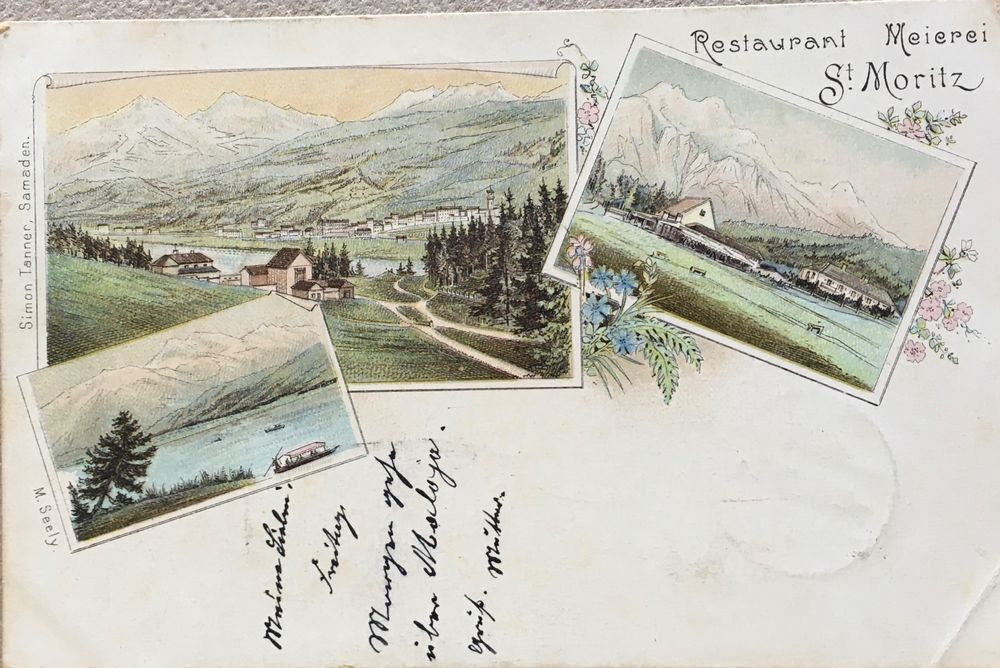 Restaurant Meierei
St. Moritz
Simon Tanner, Samaden.
M. Seely.
Meine
Freitag.
Morgen
über Maloja.
Gruß. Mutter.